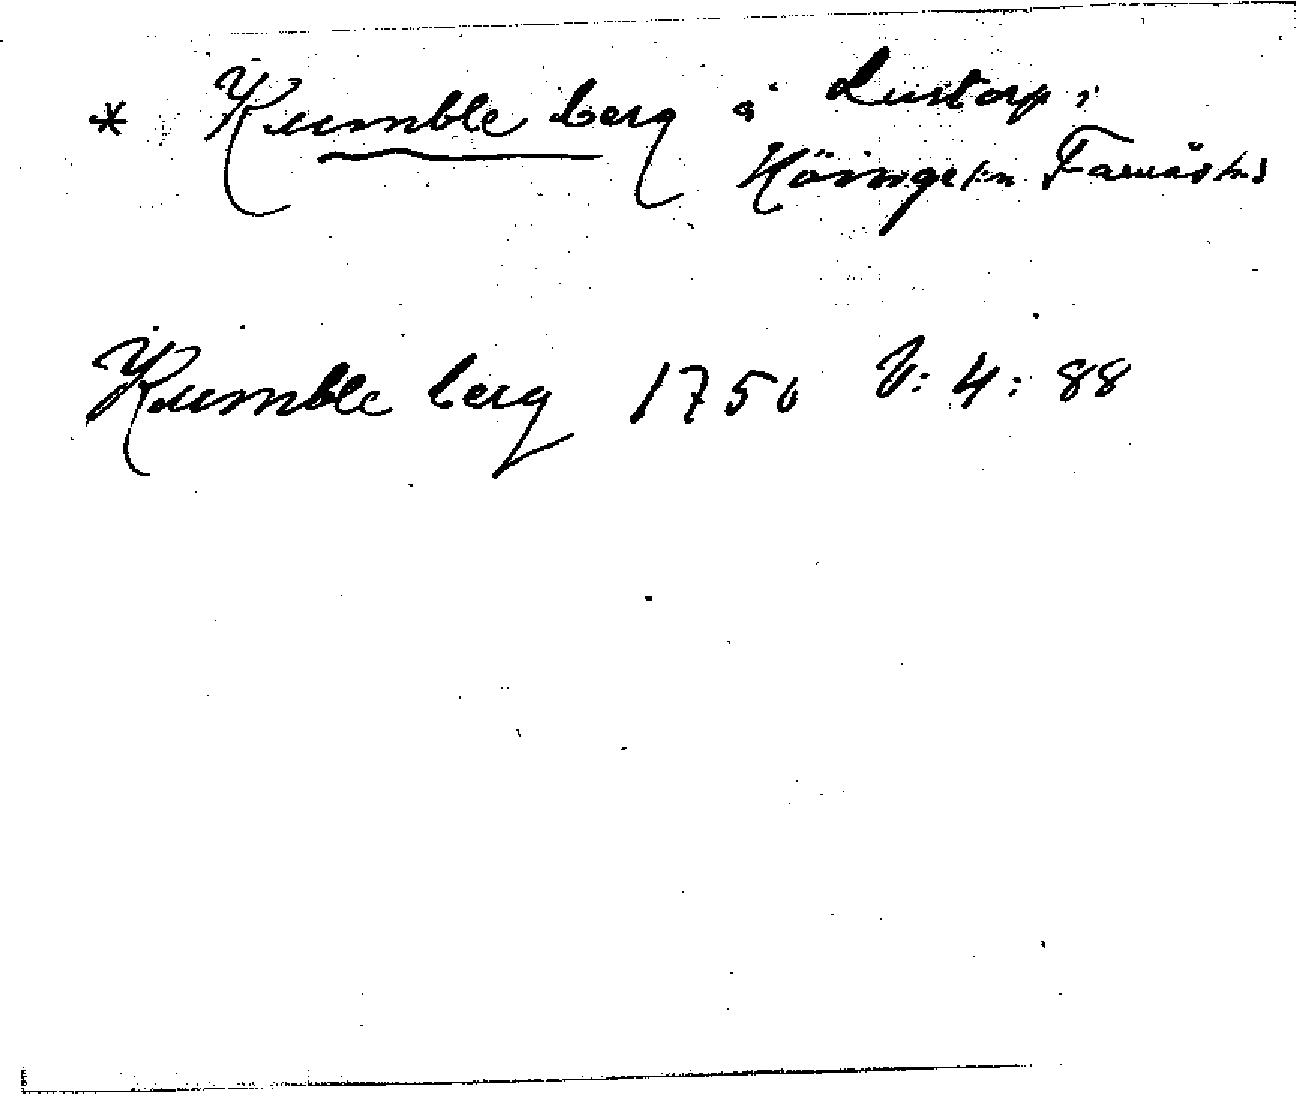 * Kumble berg å Lustorp i
Höinge sn Fauråshs
Kumble berg 1750 V: 4: 88